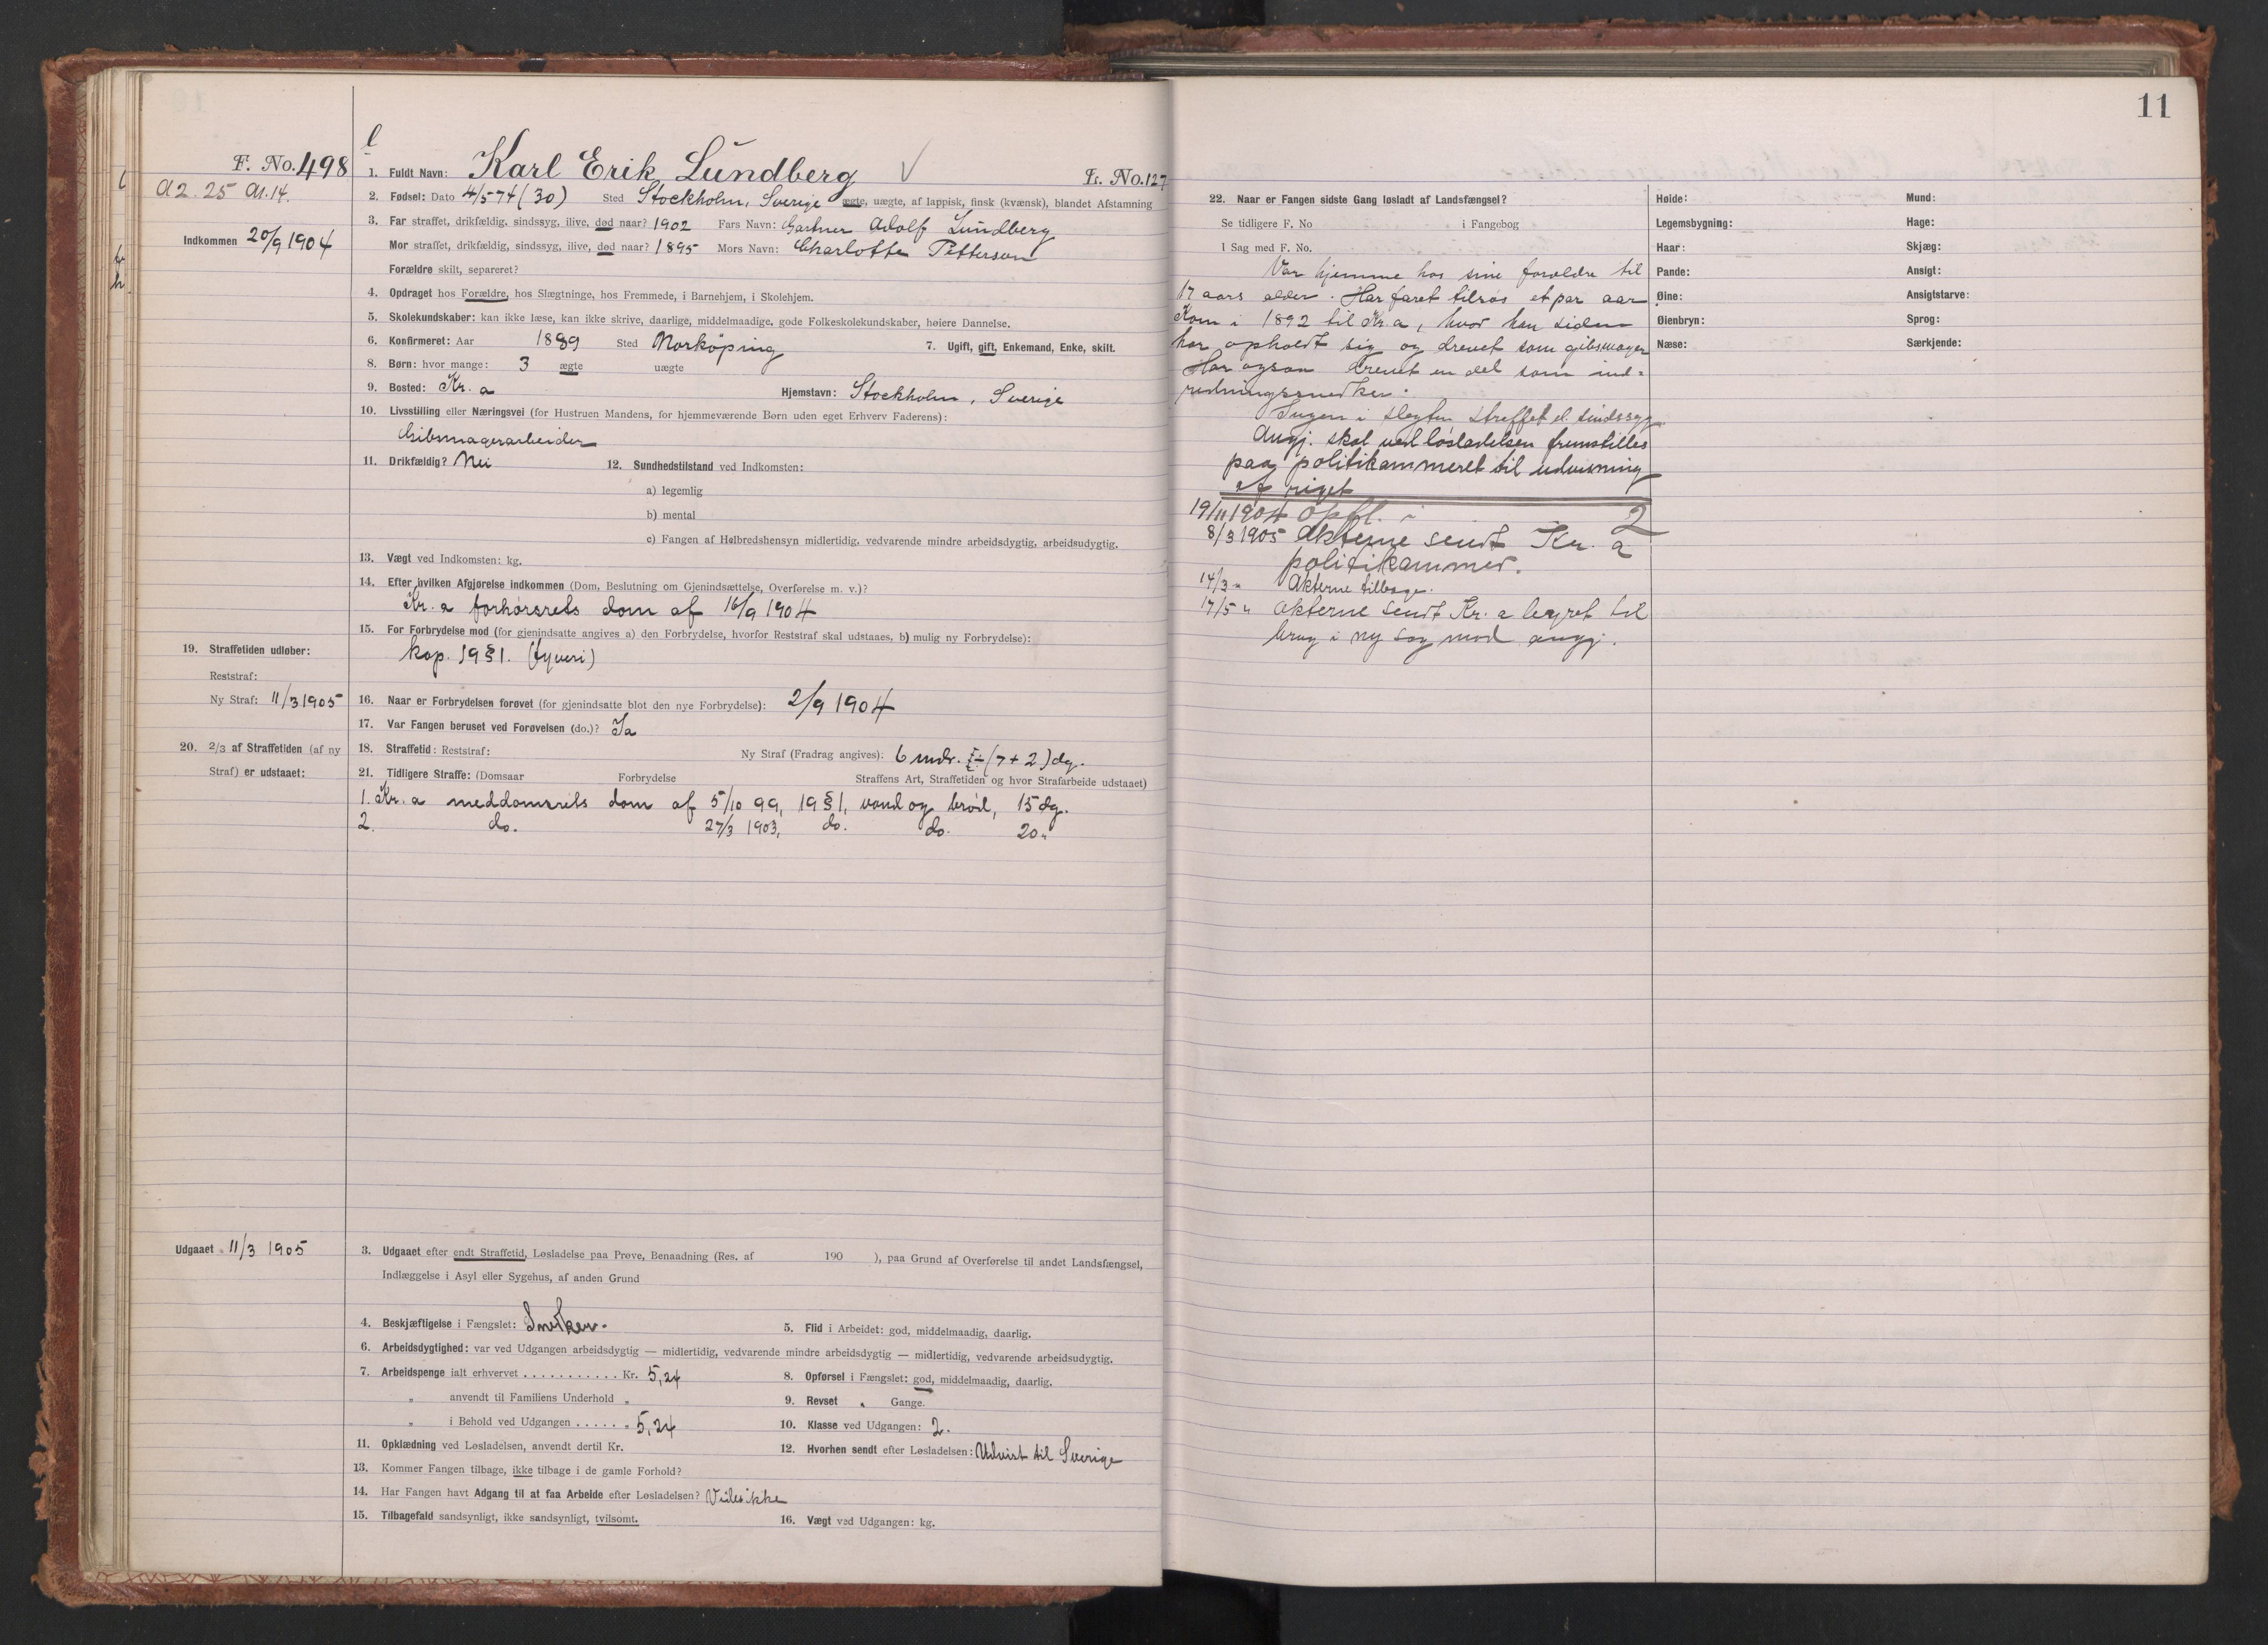 F. No. 498
A2. 25 Al. 14.
Indkommen 20/9 1904
l
1. Fuldt Navn: Karl Erik Lundberg V Fr. No. 127
2. Fødsel: Dato 4/5 74 (30) Sted Stockholm, Sverige ægte, uægte, af lappisk, finsk (kvænsk), blandet Afstamning
3. Far straffet, drikfældig, sindssyg, ilive, død naar? 1902 Fars Navn: Gartner Adolf Lundberg
Mor straffet, drikfældig, sindssyg, ilive, død naar? 1895 Mors Navn: Charlotte Petterson
Forældre skilt, separeret?
4. Opdraget hos Forældre, hos Slægtninge, hos Fremmede, i Barnehjem, i Skolehjem.
5. Skolekundskaber: kan ikke læse, kan ikke skrive, daarlige, middelmaadige, gode Folkeskolekundskaber, høiere Dannelse.
6. Konfirmeret: Aar 1889 Sted Norköping 7. Ugift, gift, Enkemand, Enke, skilt.
8. Børn: hvor mange: 3 ægte uægte
9. Bosted: Kr. a Hjemstavn: Stockholm, Sverige
10. Livsstilling eller Næringsvei (for Hustruen Mandens, for hjemmeværende Børn uden eget Erhverv Faderens):
Gibsmagerarbeider
11. Drikfældig? Nei 12. Sundhedstilstand ved Indkomsten:
a) legemlig
b) mental
c) Fangen af Helbredshensyn midlertidig, vedvarende mindre arbeidsdygtig, arbeidsudygtig.
13. Vægt ved Indkomsten: kg.
14. Efter hvilken Afgjørelse indkommen (Dom, Beslutning om Gjenindsættelse, Overførelse m. v.)?
Kr. a forhørsrets dom af 16/9 1904
15. For Forbrydelse mod (for gjenindsatte angives a) den Forbrydelse, hvorfor Reststraf skal udstaaes, b) mulig ny Forbrydelse):
kap. 19 § 1. (tyveri)
19. Straffetiden udløber:
Reststraf:
Ny Straf: 11/3 1905
16. Naar er Forbrydelsen forøvet (for gjenindsatte blot den nye Forbrydelse): 2/9 1904
17. Var Fangen beruset ved Forøvelsen (do.)? Ja
20. 2/3 af Straffetiden (af ny
Straf) er udstaaet:
18. Straffetid: Reststraf: Ny Straf (Fradrag angives): 6 mdr. ÷ (7 + 2) dg.
21. Tidligere Straffe: (Domsaar Forbrydelse Straffens Art, Straffetiden og hvor Strafarbeide udstaaet)
1. Kr. a meddomsrets dom af 5/10 99, 19 § 1, vand og brød, 15 dg.
2. do. 27/3 1903, do. do. 20 "
Udgaaet 11/3 1905
3. Udgaaet efter endt Straffetid, Løsladelse paa Prøve, Benaadning (Res. af 190 ), paa Grund af Overførelse til andet Landsfængsel,
Indlæggelse i Asyl eller Sygehus, af anden Grund
4. Beskjæftigelse i Fængslet: Snedker.
5. Flid i Arbeidet: god, middelmaadig, daarlig.
6. Arbeidsdygtighed: var ved Udgangen arbeidsdygtig — midlertidig, vedvarende mindre arbeidsdygtig — midlertidig, vedvarende arbeidsudygtig.
7. Arbeidspenge ialt erhvervet . . . . . . . . . . . Kr. 5,24
8. Opførsel i Fængslet: god, middelmaadig, daarlig.
" anvendt til Familiens Underhold "
9. Revset " Gange.
" i Behold ved Udgangen . . . . . " 5,24
10. Klasse ved Udgangen: 2.
11. Opklædning ved Løsladelsen, anvendt dertil Kr.
12. Hvorhen sendt efter Løsladelsen: Udvist til Sverige
13. Kommer Fangen tilbage, ikke tilbage i de gamle Forhold?
14. Har Fangen havt Adgang til at faa Arbeide efter Løsladelsen? Vides ikke
15. Tilbagefald sandsynligt, ikke sandsynligt, tvilsomt.
16. Vægt ved Udgangen: kg.
11
22. Naar er Fangen sidste Gang løsladt af Landsfængsel?
Se tidligere F. No i Fangebog
I Sag med F. No.
Var hjemme hos sine forældre til
17 aars alder. Har faret tilsøs et par aar
Kom i 1892 til Kr. a, hvor han siden
har opholdt sig og drevet som gibsmager
Har ogsaa drevet en del som ind-
redningssnedker.
Ingen i slegten straffet el. sindssyg
Angj. skal ved løsladelsen fremstilles
paa politikammeret til udvisning
af riget
19/11 1904 opfl. i 2
8/3 1905 Akterne sendt Kr. a
politikammer.
14/3 " Akterne tilbage.
17/5 " Akterne sendt Kr. a byret til
brug i ny sag mod angj.
Høide:
Legemsbygning:
Haar:
Pande:
Øine:
Øienbryn:
Næse:
Mund:
Hage:
Skjæg:
Ansigt:
Ansigtsfarve:
Sprog:
Særkjende: